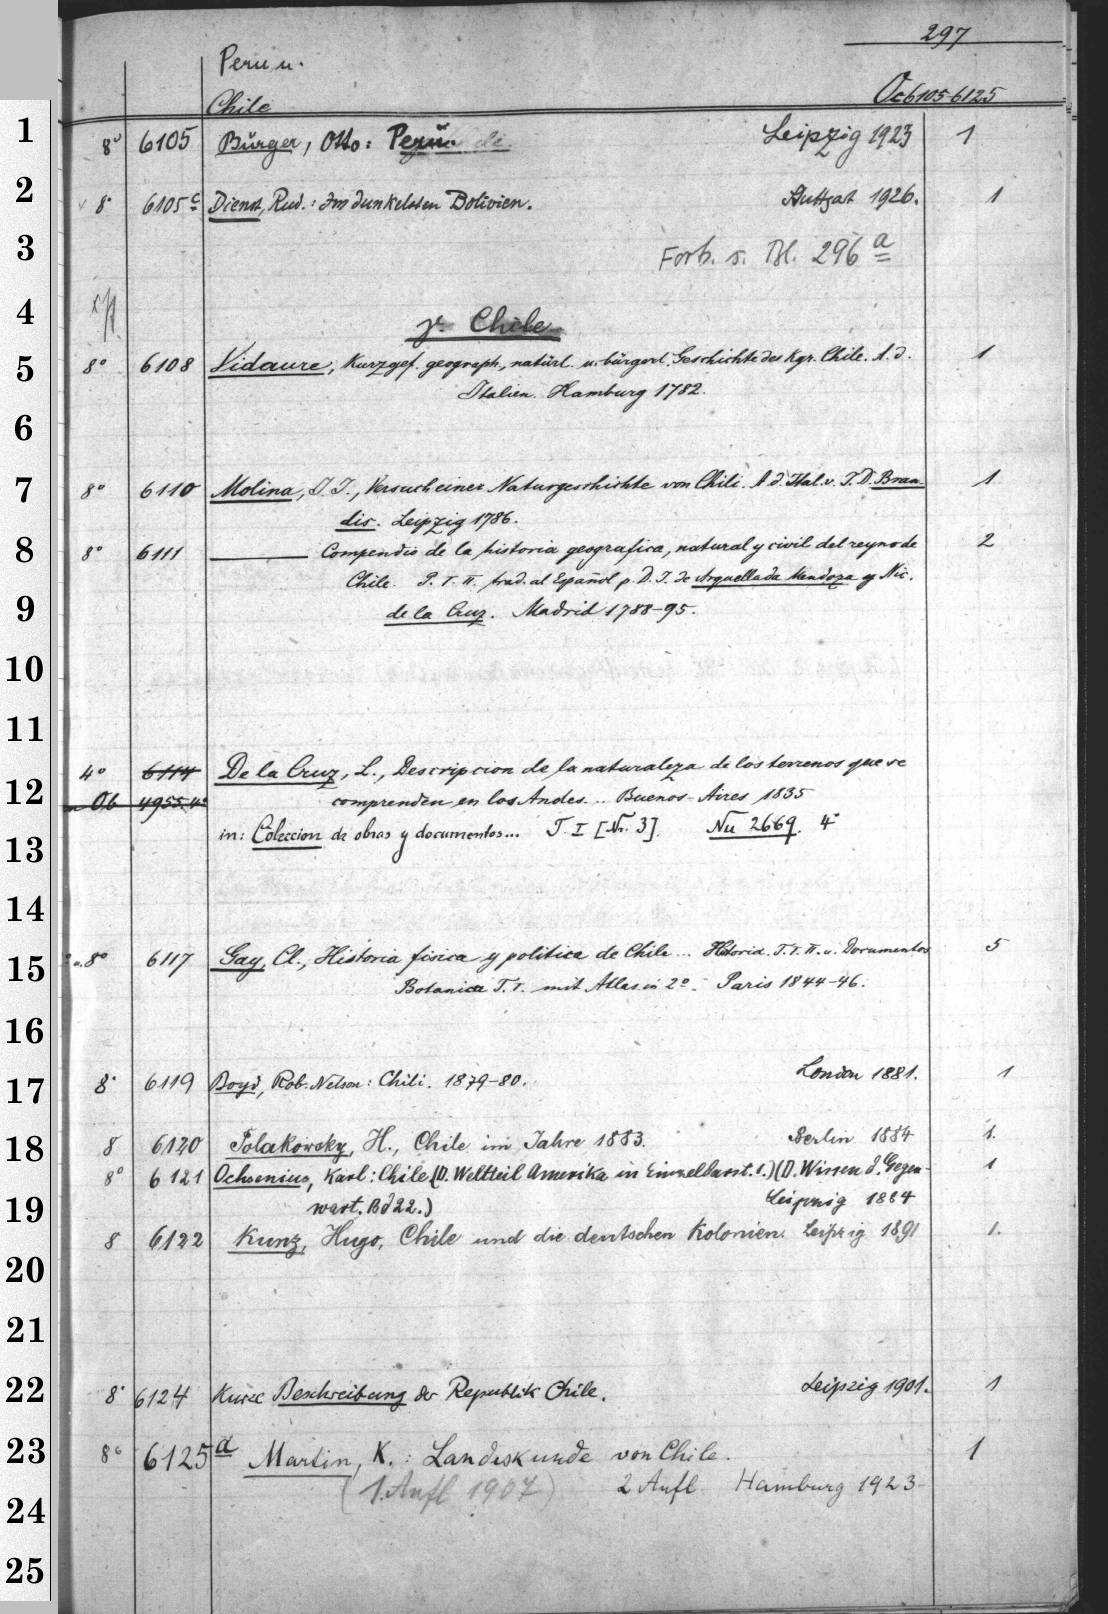 297
Peru u.
Chile
Oc 6105-6125
1
8° 6105 Bürger, Otto: Peru. Leipzig 1923 1
2
8° 6105c Dienst, Rud.: Im dunkelsten Bolivien. Stuttgart 1926. 1
3
Forts. s. Bl. 296 a
4
γ. Chile
5
8° 6108 Vidaure, Kurzgef. geograph., natürl. u. bürgerl. Geschichte des Kgr. Chile. A. d. 1
Italien. Hamburg 1782.
6
7
8° 6110 Molina, J. J., Versuch einer Naturgeschichte von Chili. A. d. Ital. v. J. D. Bran- 1
dis. Leipzig 1786.
8
8° 6111 ——— Compendio de la historia geografica, natural y civil del reyno de 2
Chile. P. I. II. trad. al Español p. D. J. de Arquellada Mendoza y Nic.
9
de la Cruz. Madrid 1788-95.
10
11
4° 6114 De la Cruz, L., Descripcion de la naturaleza de los terrenos que se
12
in Ob 4955. 4° comprenden en los Andes... Buenos-Aires 1835
13
in: Coleccion de obras y documentos... T. I [Nr. 3]. Nu 2669. 4°
14
15
2° u. 8° 6117 Gay, Cl., Historia fisica y politica de Chile... Historia. T. I. II. u. Documentos 5
Botanica T. I. mit Atlas in 2°. Paris 1844-46.
16
17
8° 6119 Boyd, Rob. Nelson: Chili. 1879-80. London 1881. 1
18
8 6120 Polakowsky, H., Chile im Jahre 1883. Berlin 1884 1.
8° 6121 Ochsenius, Karl: Chile. (D. Weltteil Amerika in Einzeldarst. 1.) (D. Wissen d. Gegen- 1
19
wart. Bd 22.) Leipzig 1884
8 6122 Kunz, Hugo, Chile und die deutschen Kolonien. Leipzig 1891 1.
20
21
22
8° 6124 Kurze Beschreibung der Republik Chile. Leipzig 1901. 1
23
8° 6125a Martin, K.: Landeskunde von Chile. 1
(1. Aufl 1907) 2 Aufl. Hamburg 1923
24
25